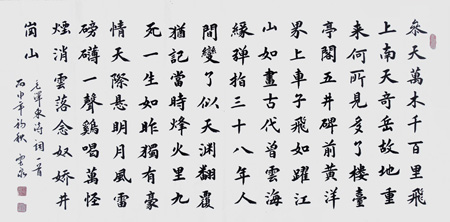 叅天萬木千百里飛
上南天奇岳故地重
来何所見多了樓臺
亭閣五井碑前黄洋
界上車子飛如躍江
山如畫古代曾雲海
緑彈指三十八年人
間變了似天淵翻覆
猶記當時烽火里九
死一生如昨獨有豪
情天際悬明月風雷
磅礴一聲鷄唱萬怪
煙消雲落念奴嬌井
岗山
毛澤東诗詞一首
丙申年初秋